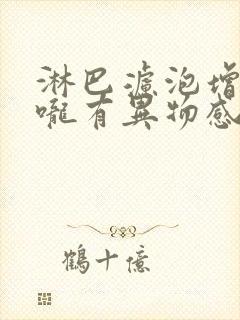 淋巴濾泡增
嚨有異物感
鶴十億